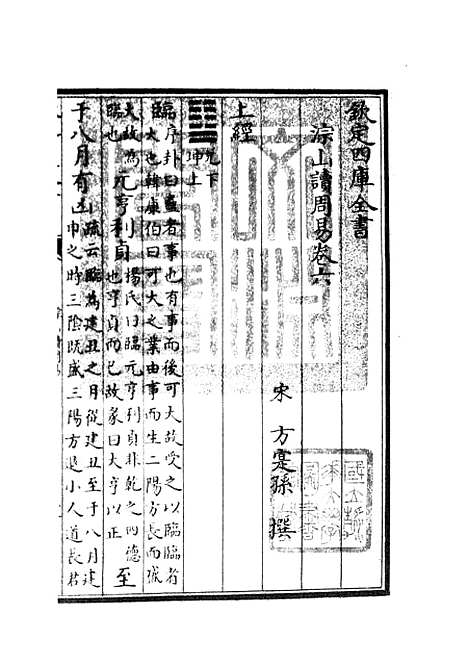 欽定四庫全書
淙山讀周易卷六
宋 方寔孫 撰
上經
兌下
坤上
臨序卦曰蠱者事也有事而後可大故受之以臨臨者
大也韓康伯曰可大之業由事而生二陽方長而浸
大故為臨也
元亨利貞楊氏曰臨元亨利貞非乾之四德
也亨貞而已故彖曰大亨以正
至
于八月有凶疏云臨為建丑之月從建丑至于八月建
申之時三陰既盛三陽方退小人道長君